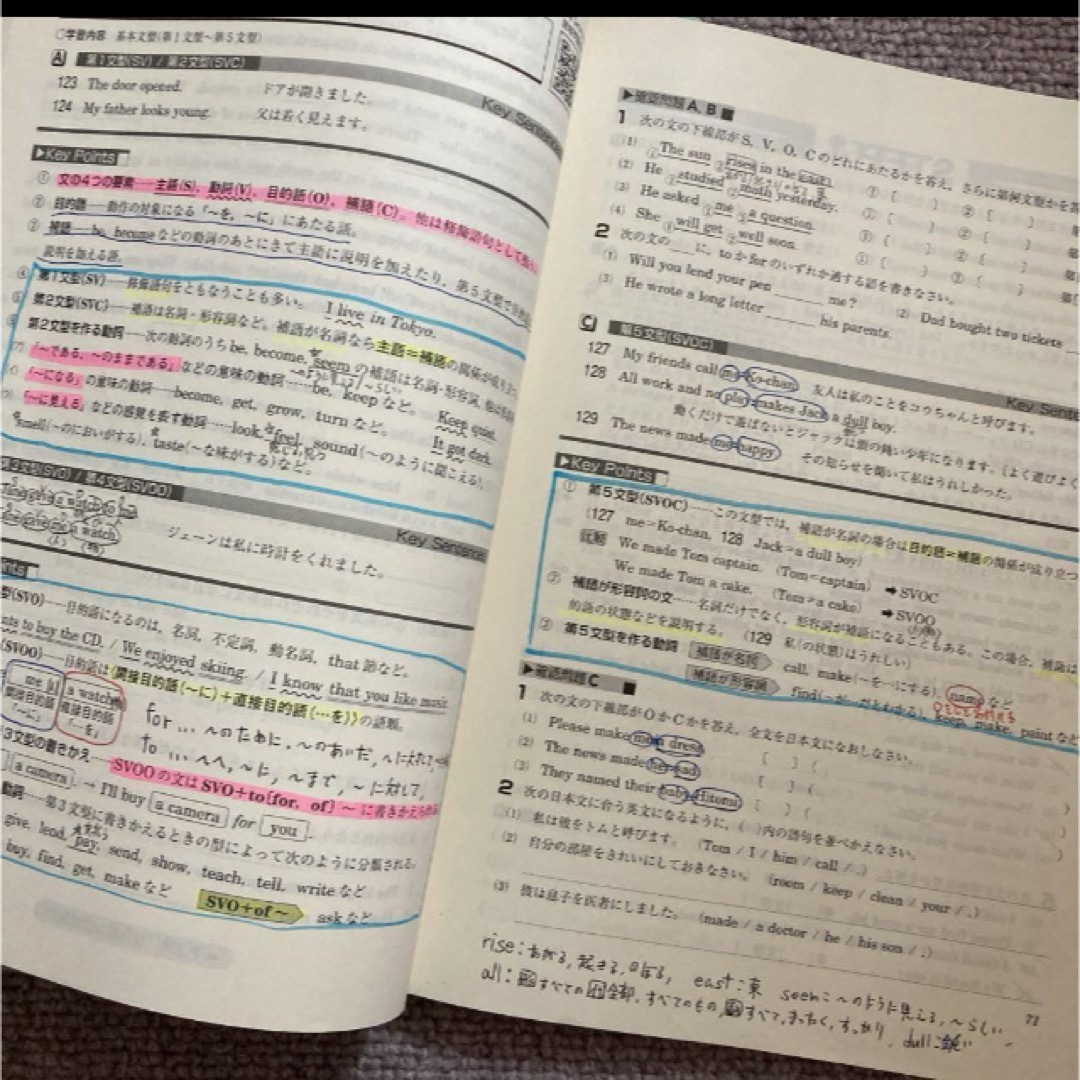 ○学習内容 基本文型(第1文型～第5文型)
A 第1文型(SV) / 第2文型(SVC)
Key Sentenc
123 The door opened. ドアが開きました。
124 My father looks young. 父は若く見えます。
▶Key Points
① 文の4つの要素……主語(S), 動詞(V), 目的語(O), 補語(C)。他は修飾語句として
② 目的語……動作の対象になる「～を, ～に」にあたる語。
③ 補語……be, becomeなどの動詞のあとにきて主語に説明を加えたり, 第5文型で
説明を加える語。
④ 第1文型(SV)……修飾語句をともなうことも多い。 I live in Tokyo.
⑤ 第2文型(SVC)……補語は名詞・形容詞など。補語が名詞なら主語＝補語の関係が成り立つ
第2文型を作る動詞……次の動詞のうちbe, become, seemの補語は名詞・形容詞, 他は
「～である, ～のままである」などの意味の動詞……be, keepなど。 Keep quiet.
「～になる」の意味の動詞……become, get, grow, turnなど。 It got dark.
「～に見える」などの感覚を表す動詞……look, feel, sound(～のように聞こえる),
smell(～のにおいがする), taste(～な味がする)など。
第3文型(SVO) / 第4文型(SVOO)
Key Sentence
give me a watch.
ジェーンは私に時計をくれました。
型(SVO)……目的語になるのは, 名詞, 不定詞, 動名詞, that節など。
nts to buy the CD. / We enjoyed skiing. / I know that you like music.
(SVOO)……目的語は〈間接目的語(～に)＋直接目的語(…を)〉の語順。
me は 間接目的語「～に」
a watchは 直接目的語「…を」
for … ～のために, ～のあいだ,
to … ～へ, ～に, ～まで, ～に対して,
3文型の書きかえ……SVOOの文はSVO+to〔for, of〕～に書きかえられる
a camera. → I'll buy a camera for you.
動詞……第3文型に書きかえるときの型によって次のように分類される。
give, lend, pay, send, show, teach, tell, writeなど
buy, find, get, makeなど SVO+of～ askなど
▶確認問題A, B
1 次の文の下線部がS, V, O, Cのどれにあたるかを答え, さらに第何文型かを答
(1) ①The sun ②rises in the east. ①〔 〕 ②〔 〕 第
(2) He ①studied ②math yesterday. ①〔 〕 ②〔 〕 第
(3) He asked ①me ②a question. ①〔 〕 ②〔 〕 第
(4) She ①will get ②well soon. ①〔 〕 ②〔 〕 第〔
2 次の文の＿に, toかforのいずれか適する語を書きなさい。
(1) Will you lend your pen ______ me?
(2) Dad bought two tickets
(3) He wrote a long letter ______ his parents.
C 第5文型(SVOC)
Key Sente
127 My friends call me Ko-chan. 友人は私のことをコウちゃんと呼びます。
128 All work and no play makes Jack a dull boy.
働くだけで遊ばないとジャックは頭の鈍い少年になります。(よく遊びよく
129 The news made me happy. その知らせを聞いて私はうれしかった。
▶Key Points
① 第5文型(SVOC)……この文型では, 補語が名詞の場合は目的語＝補語の関係が成り立つ
(127 me＝Ko-chan, 128 Jack＝a dull boy)
比較 We made Tom captain. (Tom＝captain) ➡SVOC
We made Tom a cake. (Tom≠a cake) ➡SVOO
② 補語が形容詞の文……名詞だけでなく, 形容詞が補語になることもある。この場合, 補語は
的語の状態などを説明する。 (129 私(の状態)はうれしい)
③ 第5文型を作る動詞 補語が名詞 call, make(～を…にする), nameなど
補語が形容詞 find(～が…だとわかる), keep, make, paintなど
▶確認問題C
1 次の文の下線部がOかCかを答え, 全文を日本文になおしなさい。
(1) Please make me a dress. 〔 〕(
(2) The news made her sad. 〔 〕(
(3) They named their baby Hitomi. 〔 〕(
2 次の日本文に合う英文になるように, ( )内の語句を並べかえなさい。
(1) 私は彼をトムと呼びます。 (Tom / I / him / call / .)
(2) 自分の部屋をきれいにしておきなさい。 (room / keep / clean / your / .)
(3) 彼は息子を医者にしました。 (made / a doctor / he / his son / .)
rise：あがる, 起きる, のぼる, east：東 seem：～のように見える, ～らしい,
all：すべての 全部, すべてのもの, すべて, まったく, すっかり, dull：鈍い